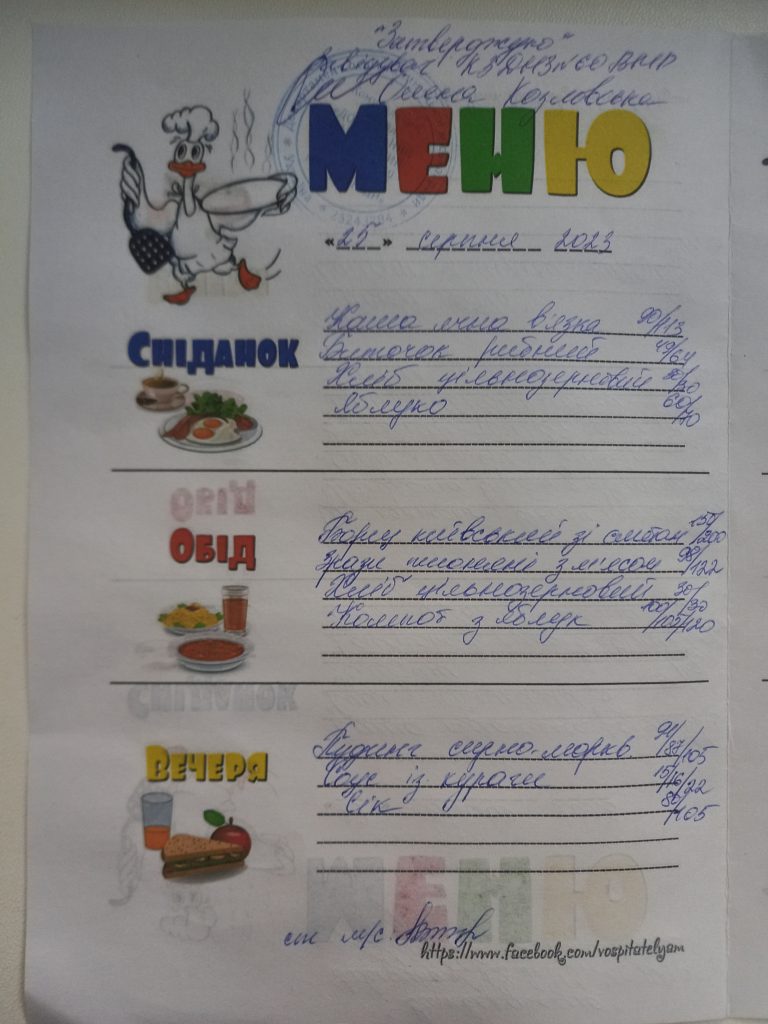 "Затверджую"
Завідувач КЗДНЗ №60 ВМР
Олена Козловська
МЕНЮ
«25» серпня 2023
СНІДАНОК
Каша ячна в'язка 90/113
Биточок рибний 49/64
Хліб цільнозерновий 20/30
Яблуко 60/70
ОБІД
Борщ київський зі сметан 150/200
Зрази пшоняні з м'ясом 98/122
Хліб цільнозерновий 30/30
Компот з яблук 100/105/120
ВЕЧЕРЯ
Пудинг сирно-моркв 94/87/105
Соус із кураги 15/16/22
Сік 105
ст м/с
https://www.facebook.com/vospitatelyam